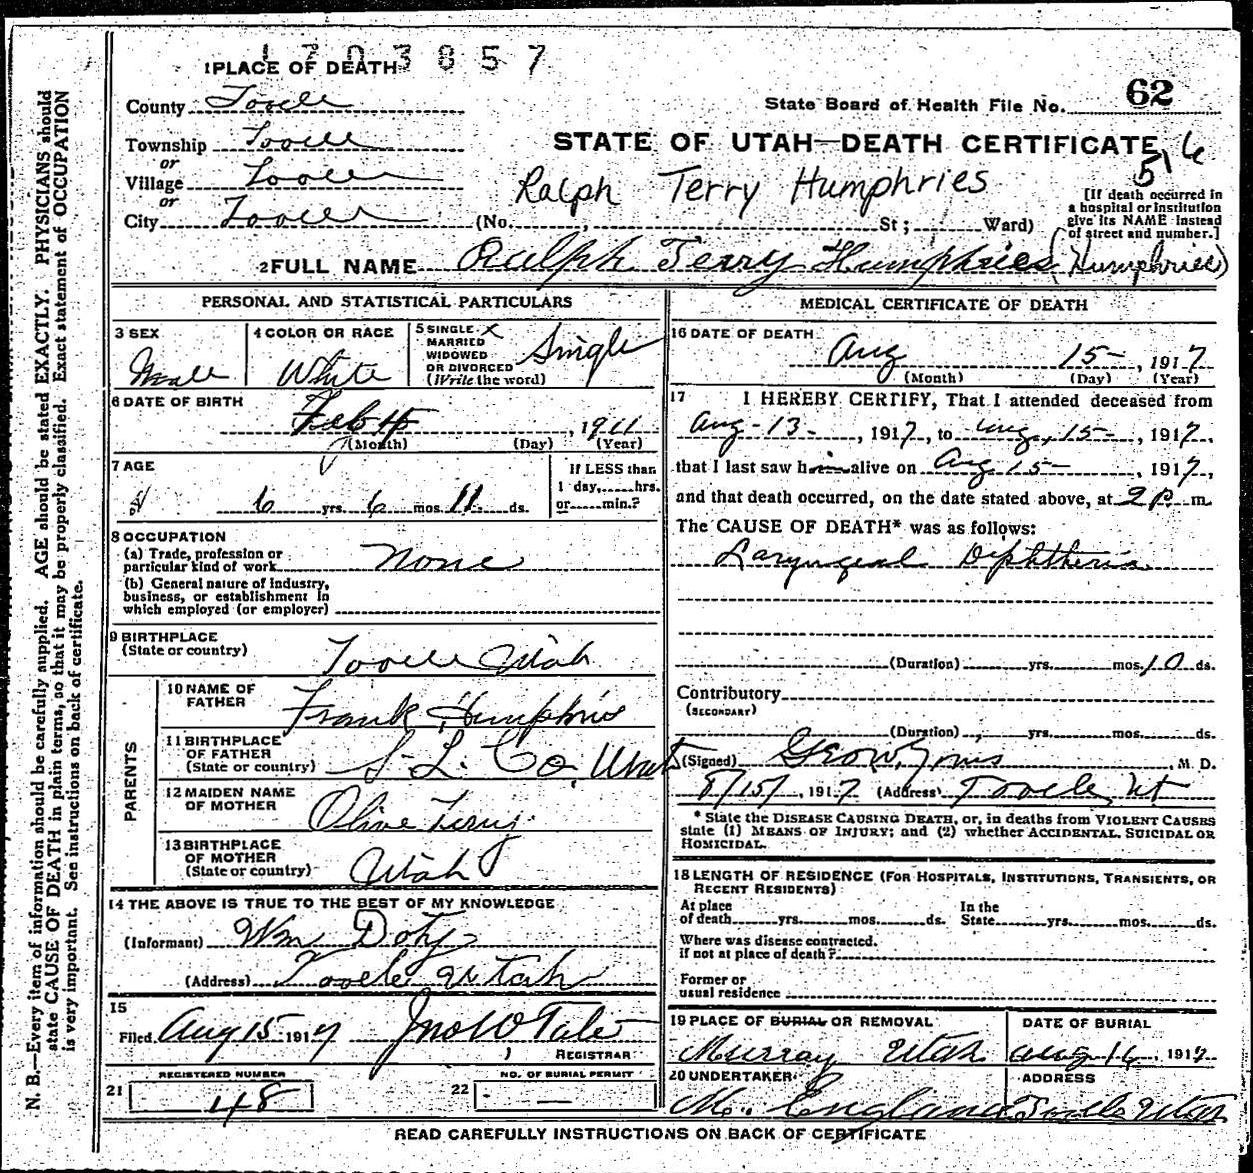 1703857
1 PLACE OF DEATH
County Tooele
State Board of Health File No. 62
Township Tooele
STATE OF UTAH—DEATH CERTIFICATE
or
Village Tooele
Ralph Terry Humphries
or
City Tooele (No. St; Ward)
[If death occurred in
a hospital or institution
give its NAME instead
of street and number.]
2 FULL NAME Ralph Terry Humphries (Humphries)
PERSONAL AND STATISTICAL PARTICULARS
3 SEX
Male
4 COLOR OR RACE
White
5 SINGLE X
MARRIED
WIDOWED
OR DIVORCED
(Write the word)
Single
6 DATE OF BIRTH
Feb 4, 1911
(Month) (Day) (Year)
7 AGE
6 yrs. 6 mos. 11 ds.
If LESS than
1 day, hrs.
or min.?
8 OCCUPATION
(a) Trade, profession or
particular kind of work None
(b) General nature of industry,
business, or establishment in
which employed (or employer)
9 BIRTHPLACE
(State or country)
Tooele Utah
PARENTS
10 NAME OF
FATHER
Frank Humphris
11 BIRTHPLACE
OF FATHER
(State or country)
S. L. Co, Utah
12 MAIDEN NAME
OF MOTHER
Olive Terry
13 BIRTHPLACE
OF MOTHER
(State or country)
Utah
14 THE ABOVE IS TRUE TO THE BEST OF MY KNOWLEDGE
(Informant) Wm Doty
(Address) Tooele Utah
15
Filed Aug 15 1917 Jno W Tate
REGISTRAR
REGISTERED NUMBER
21 48
NO. OF BURIAL PERMIT
22 —
MEDICAL CERTIFICATE OF DEATH
16 DATE OF DEATH
Aug 15-, 1917
(Month) (Day) (Year)
17 I HEREBY CERTIFY, That I attended deceased from
Aug-13-, 1917, to Aug, 15-, 1917,
that I last saw him alive on Aug 15-, 1917,
and that death occurred, on the date stated above, at 2 P. m.
The CAUSE OF DEATH* was as follows:
Laryngeal Diphtheria
(Duration) yrs. mos. 10 ds.
Contributory
(SECONDARY)
(Duration) yrs. mos. ds.
(Signed) M. D.
8/15/, 1917 (Address) Tooele, Ut
* State the DISEASE CAUSING DEATH, or, in deaths from VIOLENT CAUSES
state (1) MEANS OF INJURY; and (2) whether ACCIDENTAL, SUICIDAL OR
HOMICIDAL.
18 LENGTH OF RESIDENCE (FOR HOSPITALS, INSTITUTIONS, TRANSIENTS, OR
RECENT RESIDENTS)
At place
of death yrs. mos. ds.
In the
State yrs. mos. ds.
Where was disease contracted.
if not at place of death?
Former or
usual residence
19 PLACE OF BURIAL OR REMOVAL
Murray Utah
DATE OF BURIAL
Aug 16, 1917
20 UNDERTAKER
M. England
ADDRESS
Tooele Utah
READ CAREFULLY INSTRUCTIONS ON BACK OF CERTIFICATE
N. B.—Every item of information should be carefully supplied. AGE should be stated EXACTLY. PHYSICIANS should
state CAUSE OF DEATH in plain terms, so that it may be properly classified. Exact statement of OCCUPATION
is very important. See instructions on back of certificate.